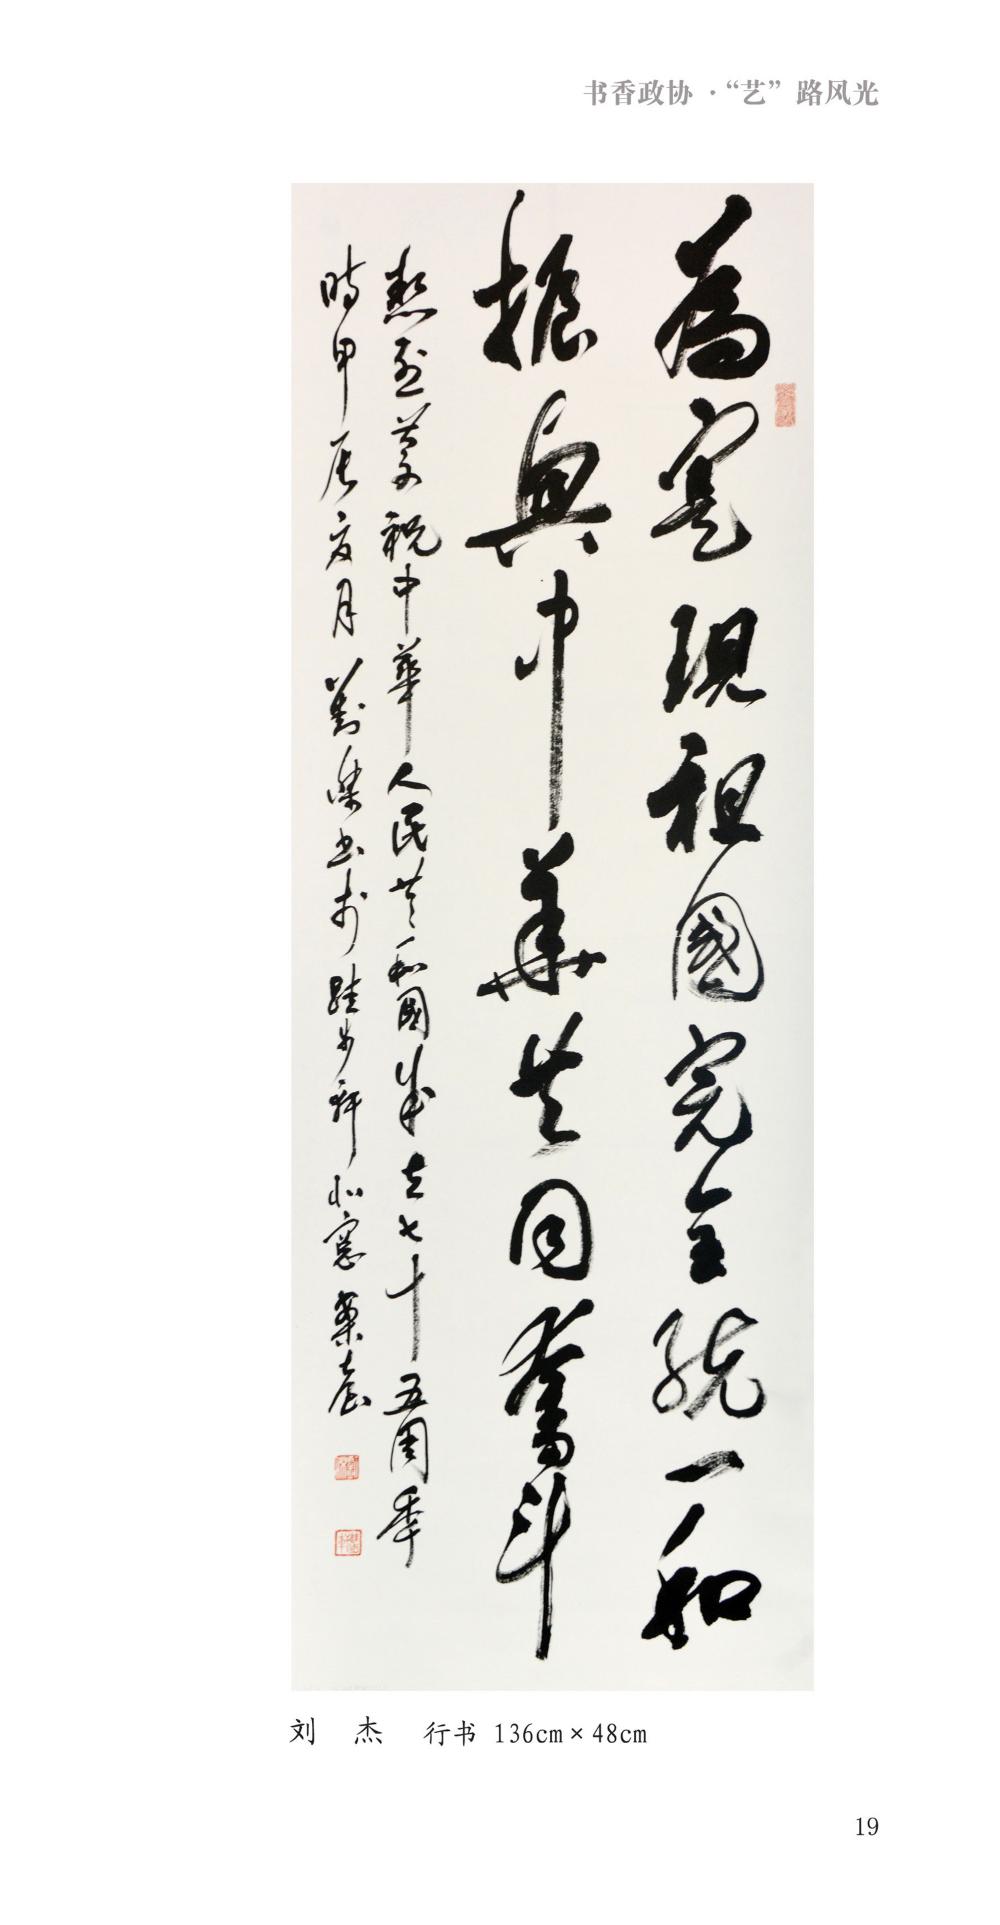 书香政协·“艺”路风光
為寔現祖國完全統一和
振興中華共同奮斗
熱烈慶祝中華人民共和國成立七十五周年
時甲辰夏月劉傑書於跬步軒北窓
刘 杰 行书 136cm×48cm
19